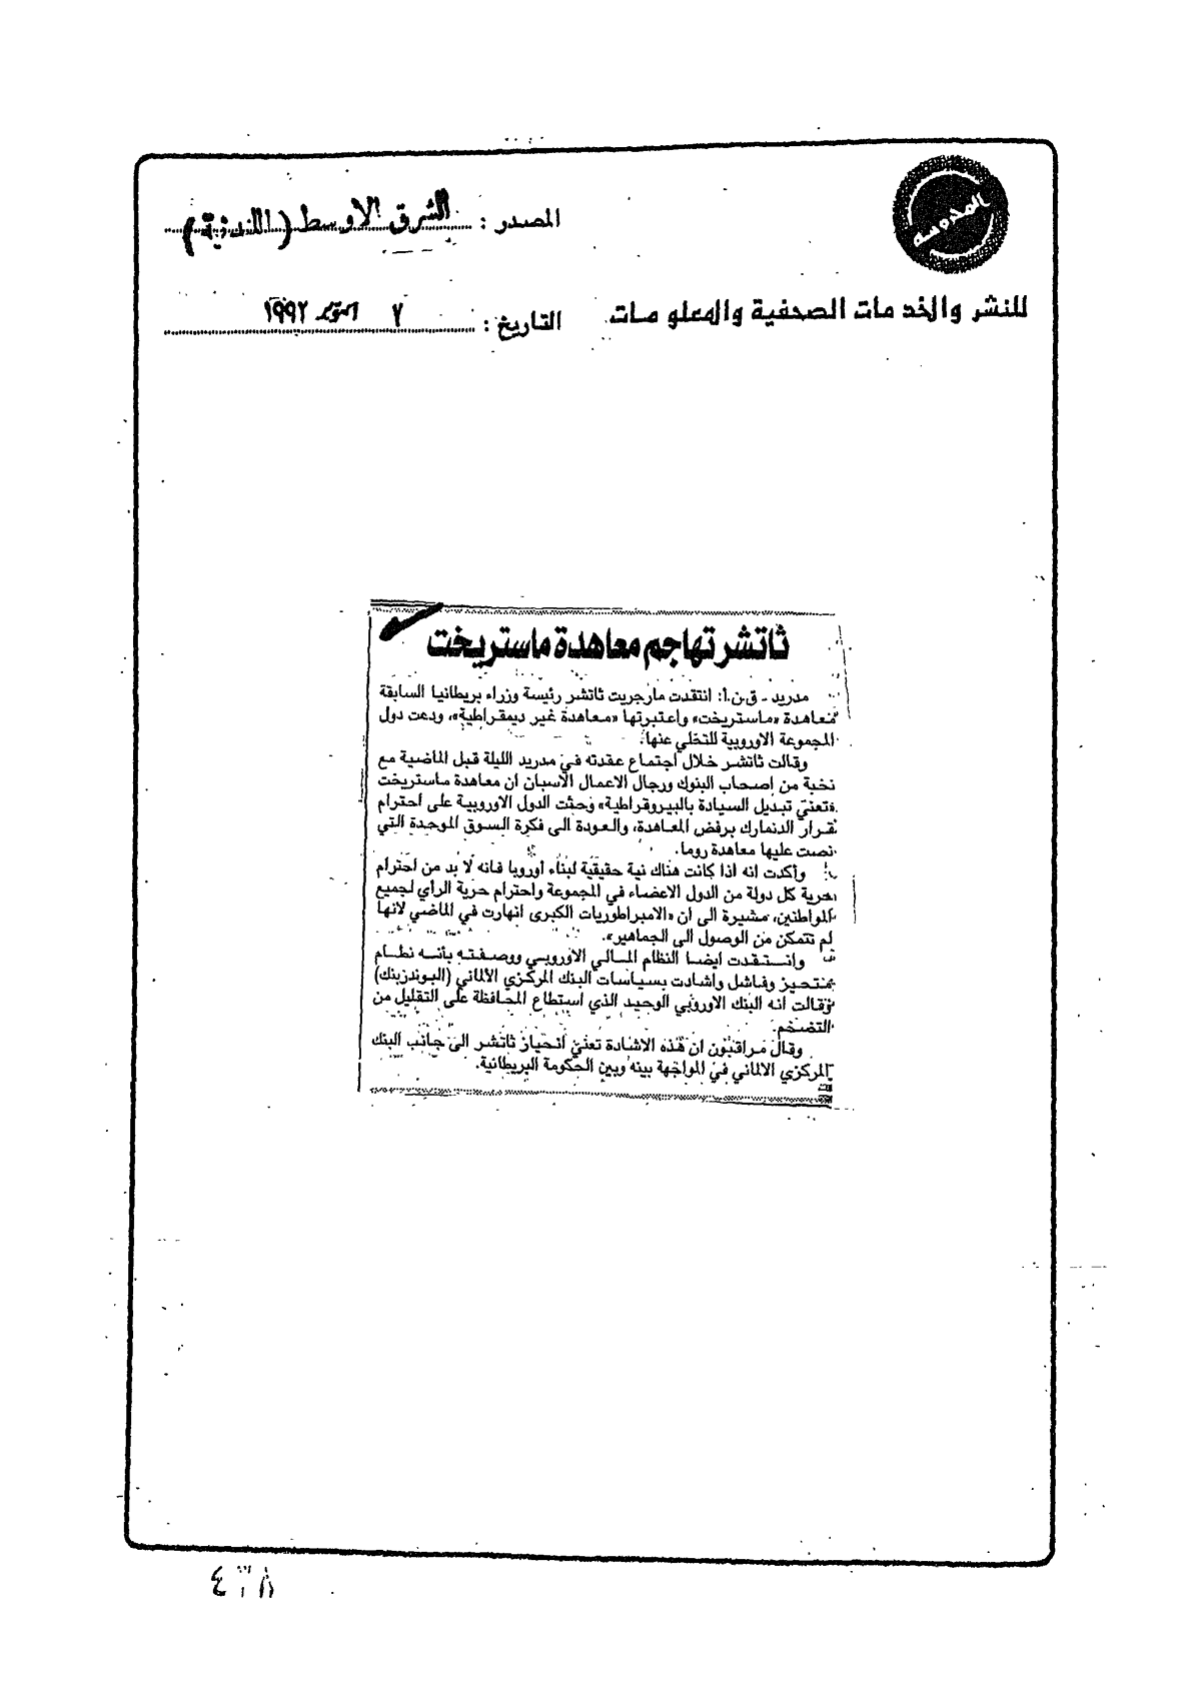 المحروسة
المصدر : الشرق الاوسط (اللندنية)
للنشر والخدمات الصحفية والمعلومات
التاريخ : ٧ اكتوبر ١٩٩٢
ثاتشر تهاجم معاهدة ماستريخت
مدريد ـ ق.ن.أ: انتقدت مارجريت ثاتشر رئيسة وزراء بريطانيا السابقة
معاهدة «ماستريخت» واعتبرتها «معاهدة غير ديمقراطية»، ودعت دول
المجموعة الاوروبية للتخلي عنها.
وقالت ثاتشر خلال اجتماع عقدته في مدريد الليلة قبل الماضية مع
نخبة من اصحاب البنوك ورجال الاعمال الاسبان ان معاهدة ماستريخت
«تعني تبديل السيادة بالبيروقراطية» وحثت الدول الاوروبية على احترام
قرار الدنمارك برفض المعاهدة، والعودة الى فكرة السوق الموحدة التي
نصت عليها معاهدة روما.
وأكدت انه اذا كانت هناك نية حقيقية لبناء أوروبا فانه لا بد من احترام
حرية كل دولة من الدول الاعضاء في المجموعة واحترام حرية الرأي لجميع
المواطنين، مشيرة الى ان «الامبراطوريات الكبرى انهارت في الماضي لانها
لم تتمكن من الوصول الى الجماهير».
وانتقدت ايضا النظام المالي الاوروبي ووصفته بأنه نظام
متحيز وفاشل واشادت بسياسات البنك المركزي الالماني (البوندزبنك)
وقالت انه البنك الاوروبي الوحيد الذي استطاع المحافظة على التقليل من
التضخم.
وقال مراقبون ان هذه الاشادة تعني انحياز ثاتشر الى جانب البنك
المركزي الالماني في المواجهة بينه وبين الحكومة البريطانية.